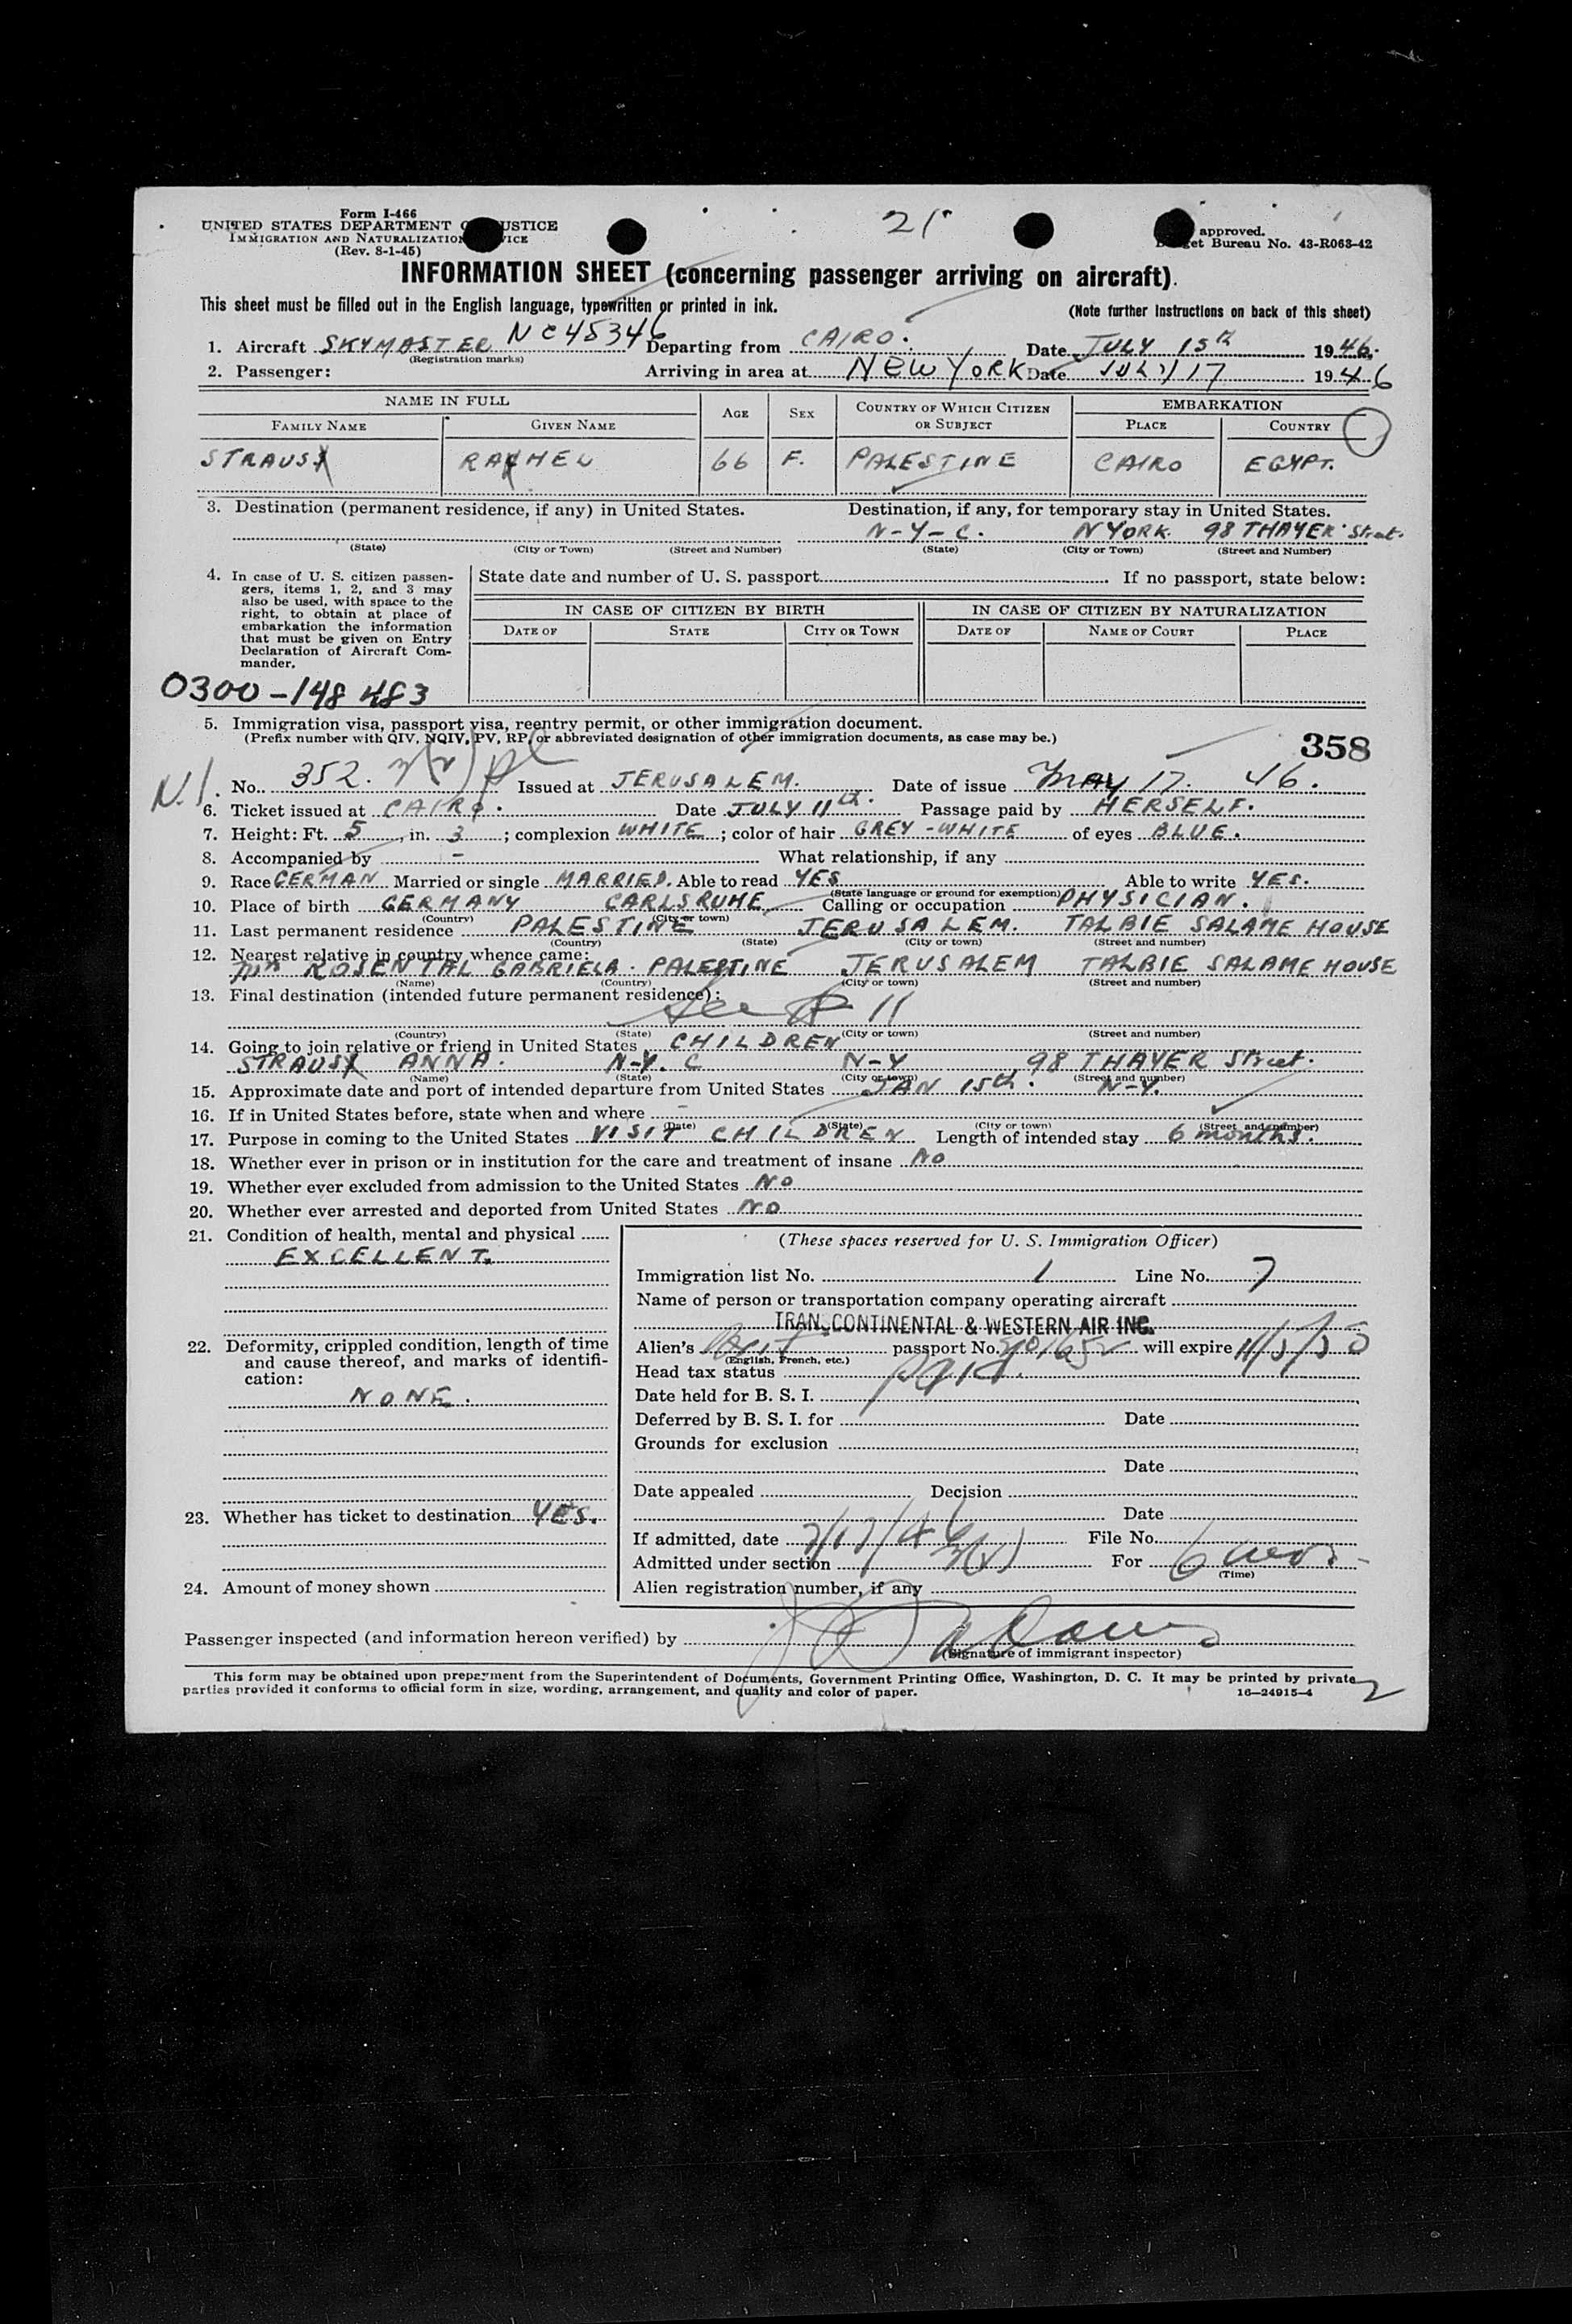 21
Form I-466
UNITED STATES DEPARTMENT O USTICE
IMMIGRATION AND NATURALIZATION VICE
(Rev. 8-1-45)
approved.
et Bureau No. 43-R063-42
INFORMATION SHEET (concerning passenger arriving on aircraft).
This sheet must be filled out in the English language, typewritten or printed in ink. (Note further instructions on back of this sheet)
1. Aircraft SKYMASTER NC45346 Departing from CAIRO. Date JULY 15th 1946.
(Registration marks)
2. Passenger: Arriving in area at NEW YORK Date JULY 17 1946
NAME IN FULL AGE SEX COUNTRY OF WHICH CITIZEN OR SUBJECT EMBARKATION
FAMILY NAME GIVEN NAME PLACE COUNTRY
STRAUSS RACHEL 66 F. PALESTINE CAIRO EGYPT.
3. Destination (permanent residence, if any) in United States. Destination, if any, for temporary stay in United States.
N-Y-C. N YORK. 98 THAYER Street.
(State) (City or Town) (Street and Number) (State) (City or Town) (Street and Number)
4. In case of U. S. citizen passengers, items 1, 2, and 3 may also be used, with space to the right, to obtain at place of embarkation the information that must be given on Entry Declaration of Aircraft Commander.
State date and number of U. S. passport If no passport, state below:
IN CASE OF CITIZEN BY BIRTH IN CASE OF CITIZEN BY NATURALIZATION
DATE OF STATE CITY OR TOWN DATE OF NAME OF COURT PLACE
0300-148 483
5. Immigration visa, passport visa, reentry permit, or other immigration document.
(Prefix number with QIV, NQIV, PV, RP, or abbreviated designation of other immigration documents, as case may be.)
358
No. 352. Issued at JERUSALEM. Date of issue MAY 17. 46.
6. Ticket issued at CAIRO. Date JULY 11th. Passage paid by HERSELF.
7. Height: Ft. 5, in. 3; complexion WHITE; color of hair GREY-WHITE of eyes BLUE.
8. Accompanied by - What relationship, if any
9. Race GERMAN Married or single MARRIED. Able to read YES Able to write YES.
(State language or ground for exemption)
10. Place of birth GERMANY CARLSRUHE Calling or occupation PHYSICIAN.
(Country) (City or town)
11. Last permanent residence PALESTINE JERUSALEM. TALBIE SALAME HOUSE
(Country) (State) (City or town) (Street and number)
12. Nearest relative in country whence came:
ROSENTAL GABRIELA. PALESTINE JERUSALEM TALBIE SALAME HOUSE
(Name) (Country) (City or town) (Street and number)
13. Final destination (intended future permanent residence):
See # 11
(Country) (State) (City or town) (Street and number)
14. Going to join relative or friend in United States CHILDREN
STRAUSS ANNA. N-Y. C N-Y 98 THAYER Street.
(Name) (State) (City or town) (Street and number)
15. Approximate date and port of intended departure from United States JAN 15th. N-Y.
16. If in United States before, state when and where -
(Date) (State) (City or town) (Street and number)
17. Purpose in coming to the United States VISIT CHILDREN Length of intended stay 6 months.
18. Whether ever in prison or in institution for the care and treatment of insane NO
19. Whether ever excluded from admission to the United States NO
20. Whether ever arrested and deported from United States NO
21. Condition of health, mental and physical
EXCELLENT.
22. Deformity, crippled condition, length of time and cause thereof, and marks of identification:
NONE.
23. Whether has ticket to destination YES.
24. Amount of money shown
(These spaces reserved for U. S. Immigration Officer)
Immigration list No. 1 Line No. 7
Name of person or transportation company operating aircraft
TRANSCONTINENTAL & WESTERN AIR INC.
Alien's Brit passport No. will expire 11/5/50
(English, French, etc.)
Head tax status paid.
Date held for B. S. I.
Deferred by B. S. I. for Date
Grounds for exclusion
Date
Date appealed Decision
Date
If admitted, date 7/17/46 File No.
Admitted under section 3(2) For 6 mos.
(Time)
Alien registration number, if any
Passenger inspected (and information hereon verified) by
(Signature of immigrant inspector)
This form may be obtained upon prepayment from the Superintendent of Documents, Government Printing Office, Washington, D. C. It may be printed by private
parties provided it conforms to official form in size, wording, arrangement, and quality and color of paper. 16—24915-4
2